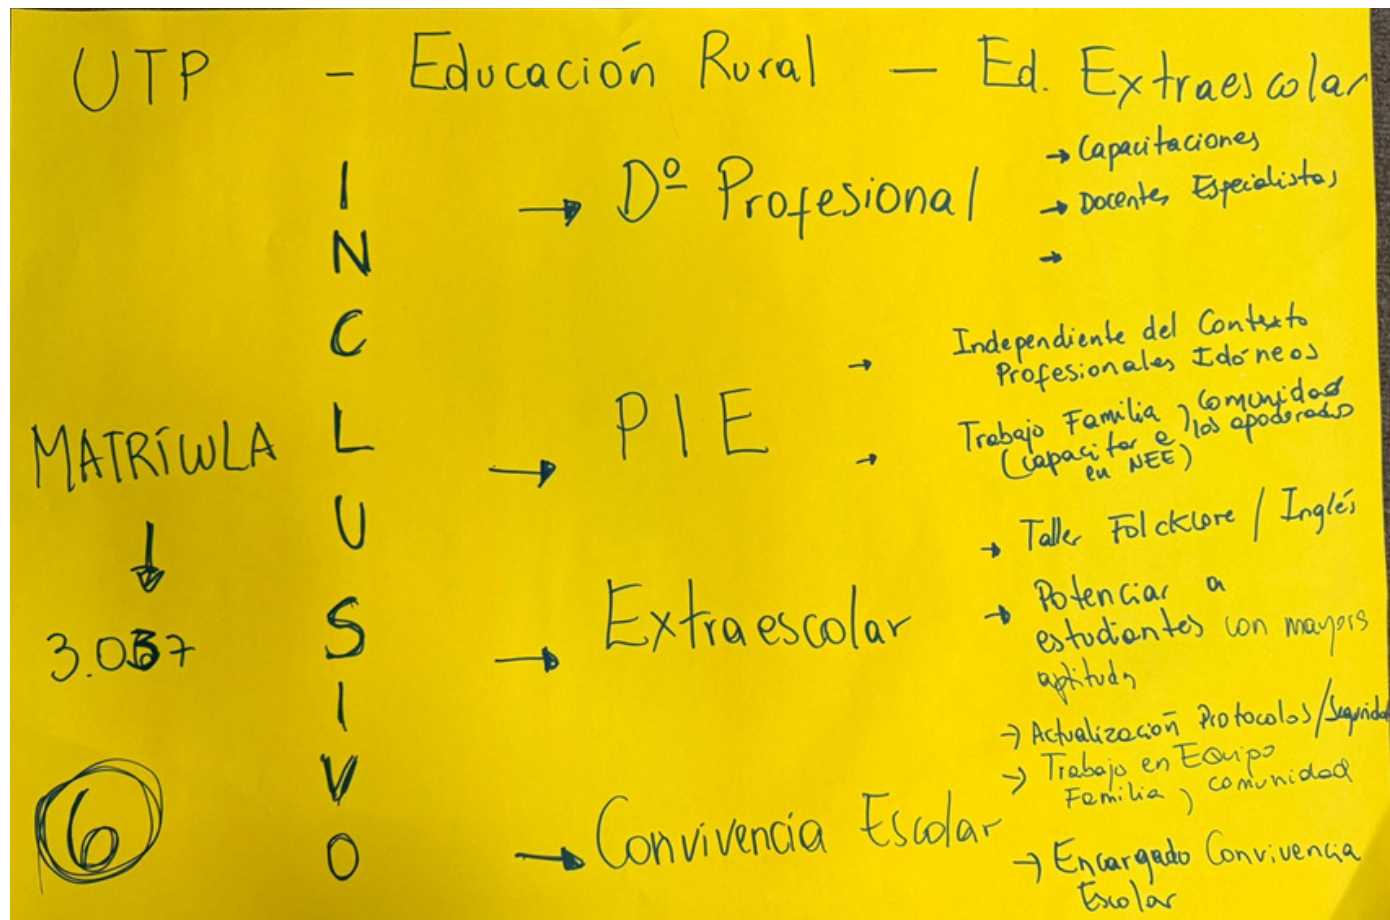 UTP - Educación Rural - Ed. Extraescolar
INCLUSIVO
MATRÍCULA
↓
3.037
6
→ Dº Profesional
→ Capacitaciones
→ Docentes Especialistas
→
→ PIE
→ Independiente del Contexto
Profesionales Idóneos
→ Trabajo Familia, Comunidad
(capacitar a los apoderados
en NEE)
→ Extraescolar
→ Taller Folcklore / Inglés
→ Potenciar a
estudiantes con mayors
aptituds
→ Convivencia Escolar
→ Actualización Protocolos/Seguridad
→ Trabajo en Equipo
Familia, comunidad
→ Encargado Convivencia
Escolar